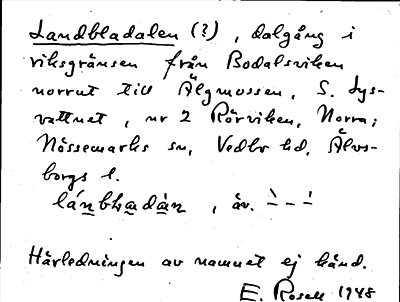 Landbladalen (?), dalgång i
riksgränsen från Bodalsviken
norrut till Älgmossen, S. Lys-
vattnet, nr 2 Rörviken, Norra;
Nössemarks sn, Vedbo hd, Älvs-
borgs l.
lánbladàn, äv. ` - - ´
Härledningen av namnet ej känd.
E. Rosell 1948